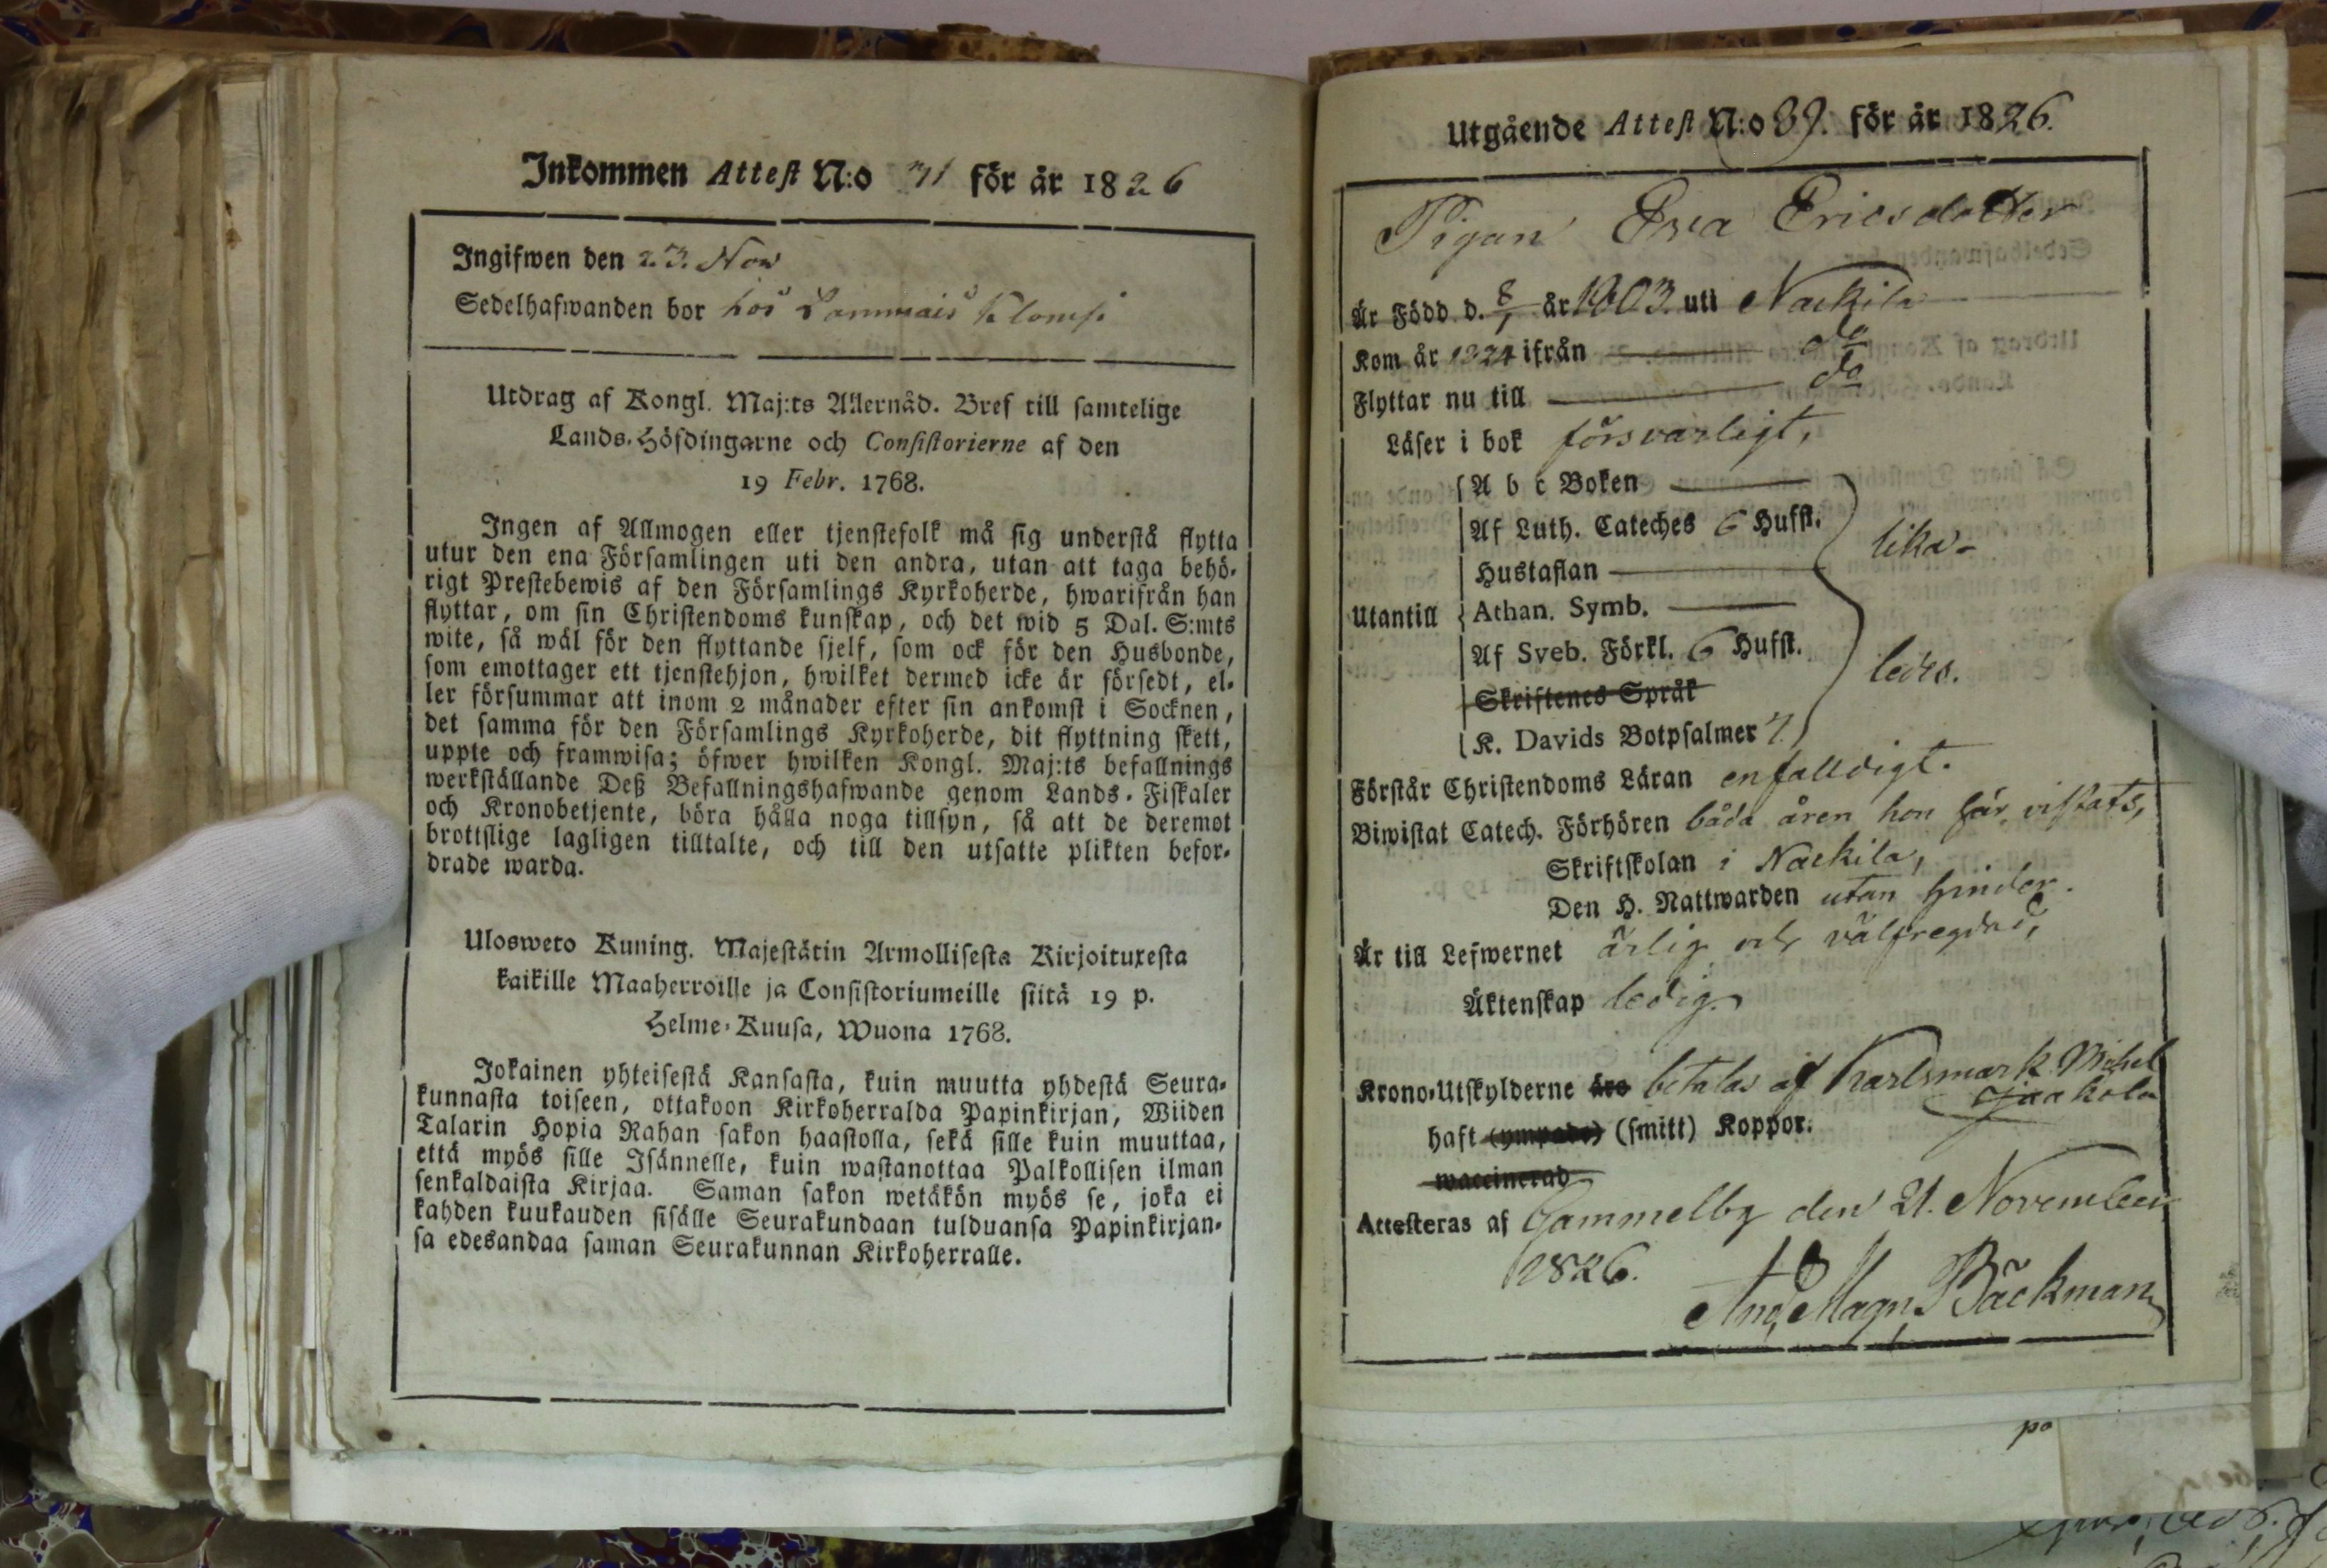 Inkommen Attest N:o 71 för år 1826
Ingifwen den 23. Nov
Sedelhafwanden bor hos
Utdrag af Kongl. Maj:ts Allernåd. Bref till samtelige
Lands-Höfdingarne och Consistorierne af den
19 Febr. 1768.
Ingen af Allmogen eller tjenstefolk må sig understå flytta
utur den ena Församlingen uti den andra, utan att taga behö-
rigt Prestebewis af den Församlings Kyrkoherde, hwarifrån han
flyttar, om sin Christendoms kunskap, och det wid 5 Dal. S:mts
wite, så wäl för den flyttande sjelf, som ock för den Husbonde,
som emottager ett tjenstehjon, hwilket dermed icke är försedt, el-
ler försummar att inom 2 månader efter sin ankomst i Socknen,
det samma för den Församlings Kyrkoherde, dit flyttning skett,
uppte och framwisa; öfwer hwilken Kongl. Maj:ts befallnings
werkställande Deß Befallningshafwande genom Lands-Fiskaler
och Kronobetjente, böra hålla noga tillsyn, så att de deremot
brottslige lagligen tilltalte, och till den utsatte plikten befor-
drade warda.
Ulosweto Kuning. Majestätin Armollisesta Kirjoituxesta
kaikille Maaherroille ja Consistoriumeille siitä 19 p.
Helme-Kuusa, Wuona 1768.
Jokainen yhteisestä Kansasta, kuin muutta yhdestä Seura-
kunnasta toiseen, ottakoon Kirkoherralda Papinkirjan, Wiiden
Talarin Hopia Rahan sakon haastolla, sekä sille kuin muuttaa,
että myös sille Isännelle, kuin wastanottaa Palkollisen ilman
senkaldaista Kirjaa. Saman sakon wetäkön myös se, joka ei
kahden kuukauden sisälle Seurakundaan tulduansa Papinkirjan-
sa edesandaa saman Seurakunnan Kirkoherralle.
Utgående Attest N:o 89. för år 1826.
Pigan Eva Ericsdotter
Är Född d. 8/1 år 1803. uti Nackila
Kom år 1824 ifrån do
Flyttar nu till do
Läser i bok försvarligt,
A b c Boken
Af Luth. Cateches 6 Hufst.
lika-
Hustaflan
Utantill Athan. Symb.
Af Sveb. Förkl. 6 Hufst.
ledes.
Skriftenes Språk
K. Davids Botpsalmer 7.
Förstår Christendoms Läran enfalldigt.
Biwistat Catech. Förhören båda åren hon här vistats,
Skriftskolan i Nackila,
Den H. Nattwarden utan hinder.
Är till Lefwernet ärlig och välfregdad,
Äktenskap ledig.
Krono-Utskylderne äro betalas af Karlsmark Michel
Jaakola
haft (ympade) (smitt) Koppor.
waccinerad
Attesteras af Gammelby den 21. November
1826.
And. Magn. Bäckman
po